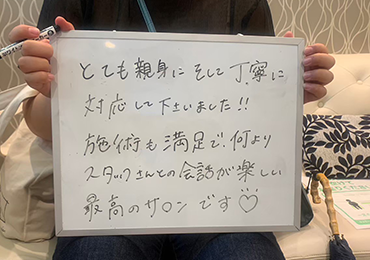 とても親身にそして丁寧に
対応して下さいました!!
施術も満足で、何より
スタッフさんとの会話が楽しい
最高のサロンです♡